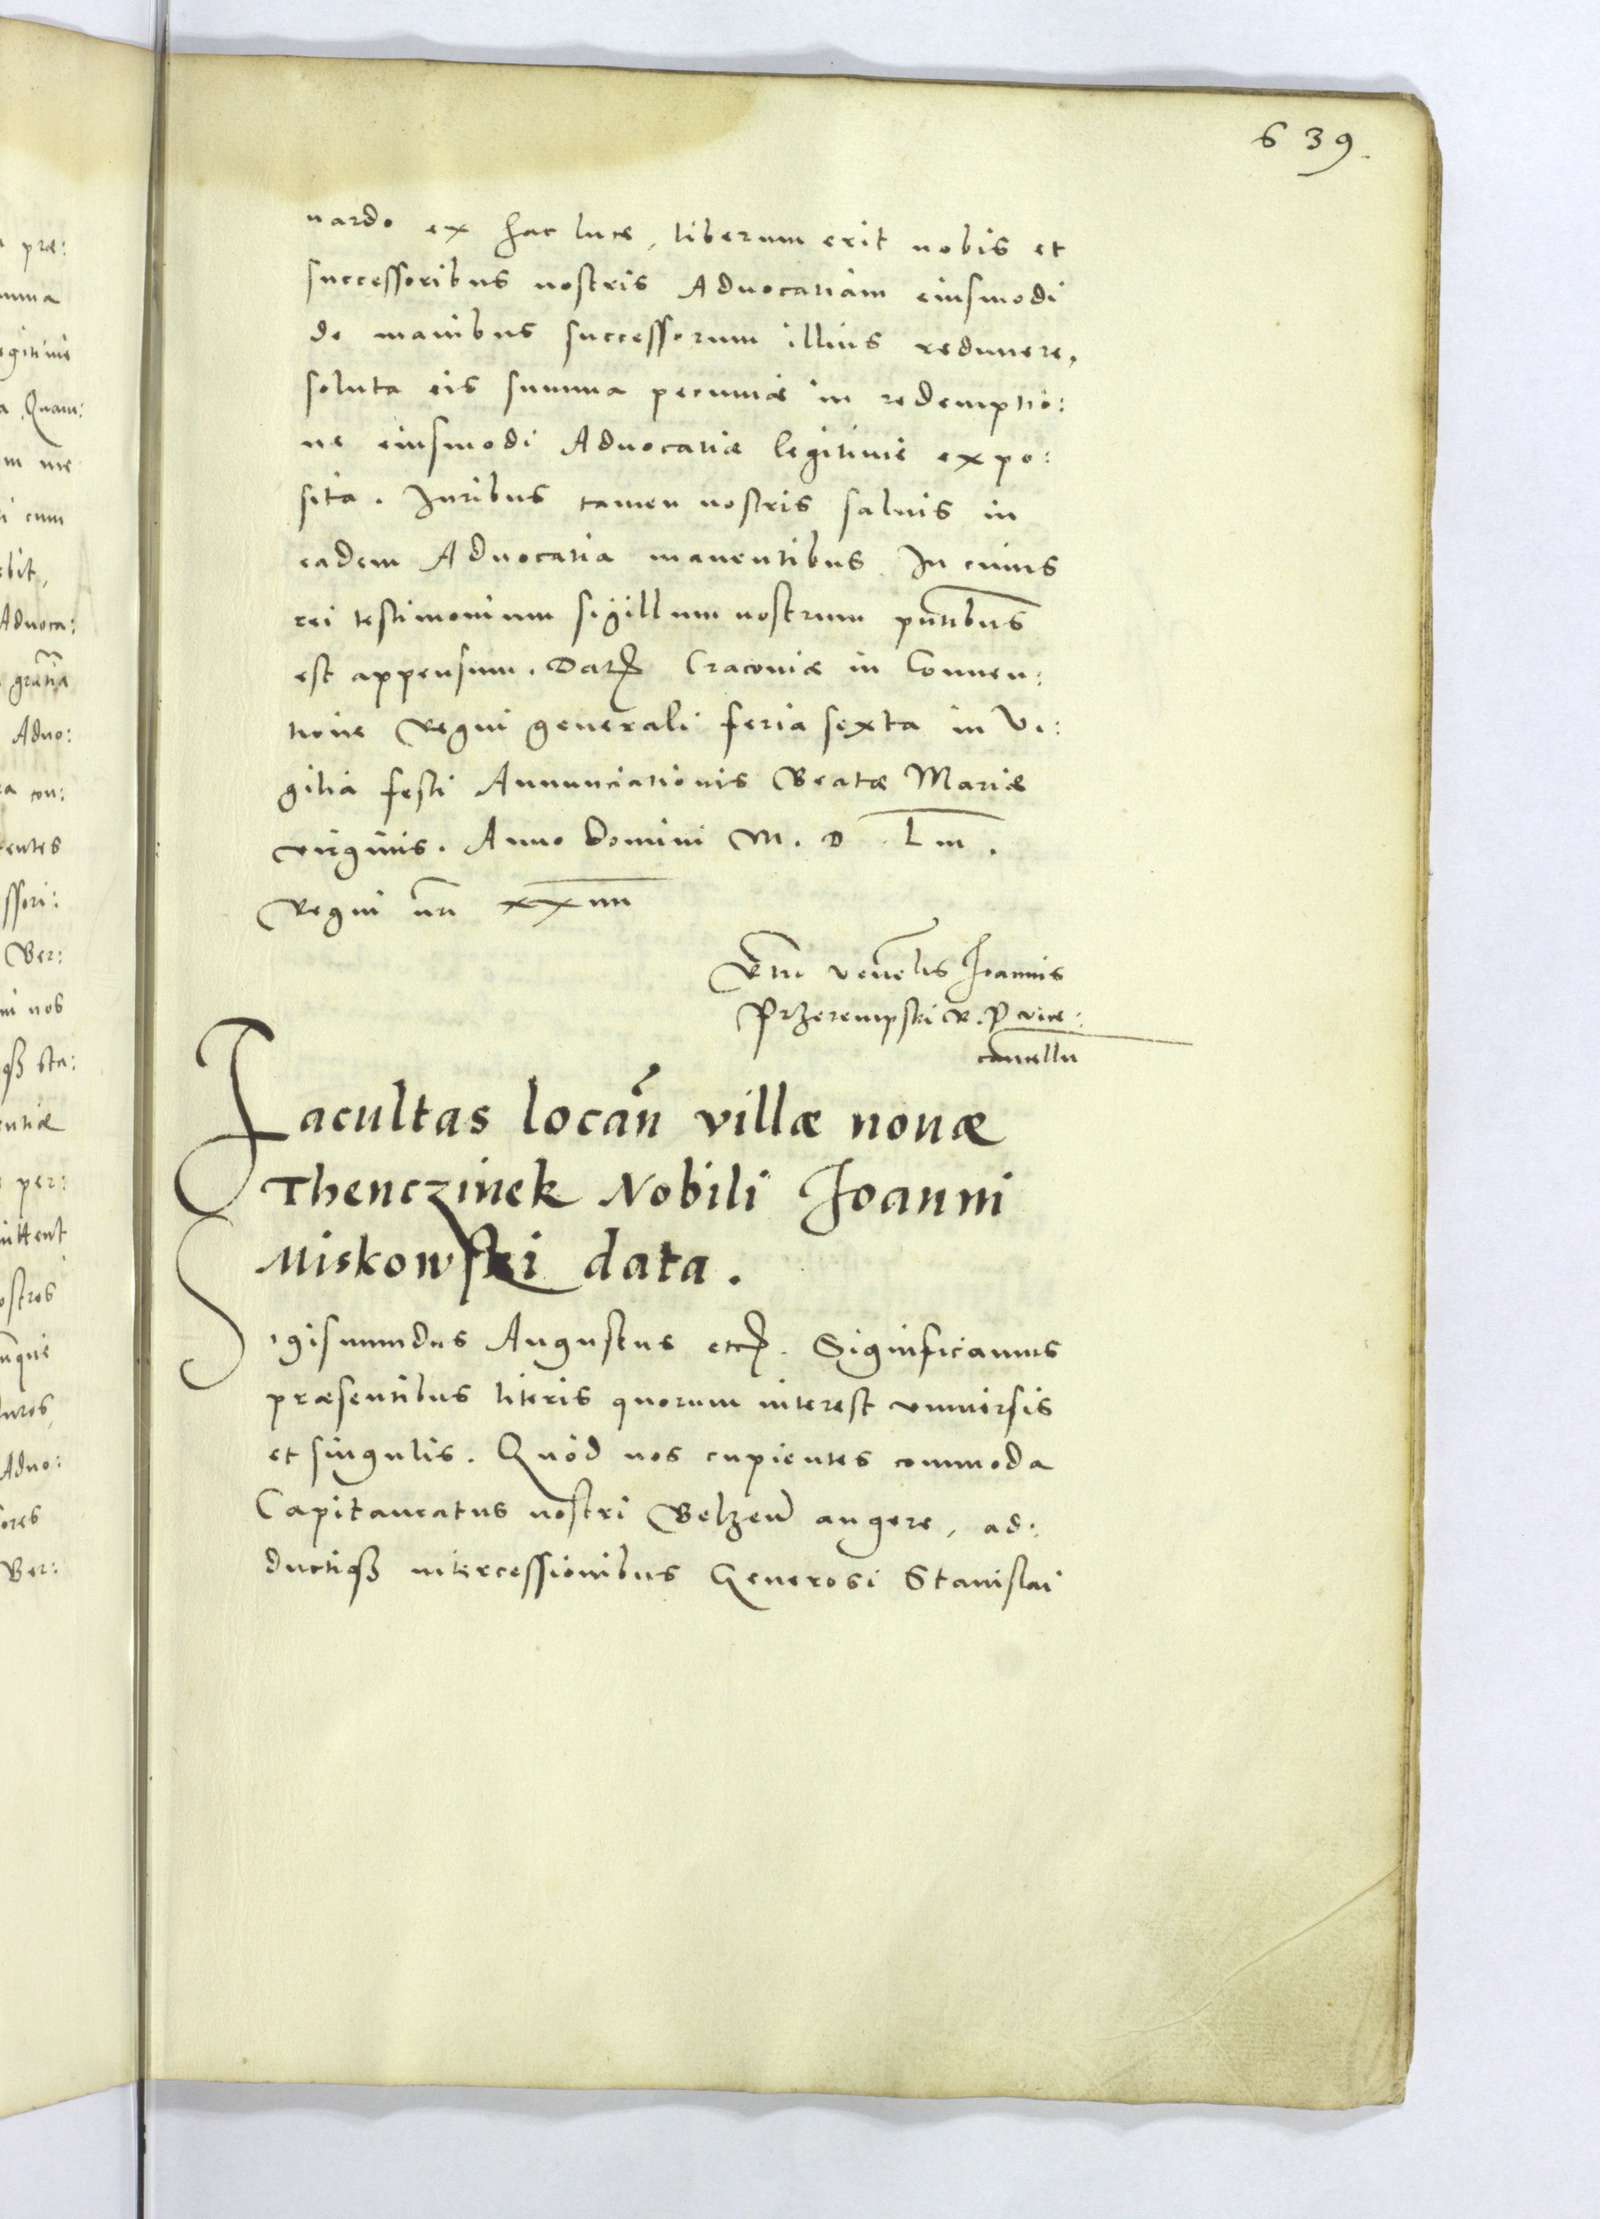 639.
nardo ex hac luce, liberum erit nobis et
successoribus nostris Advocatiam eiusmodi
de manibus successorum illius redimere,
soluta eis summa pecuniæ in redemptio:
ne eiusmodi Advocatiæ legitime expo:
sita. Iuribus tamen nostris salvis in
eadem Advocatia manentibus. In cuius
rei testimonium sigillum nostrum pñtibus
est appensum. Dat Cracoviæ in Conven:
tione Regni generali feria sexta in Vi:
gilia festi Annunciationis Beatæ Mariæ
virginis. Anno Domini M. D. Liii.
Regni nri xxiiii
Rtio veñelis Ioannis
Przerempski R. P. vice:
cancellii
Facultas locañ villæ novæ
Thenczinek Nobili Ioanni
Miskowski data.
Sigismundus Augustus etc. Significamus
præsentibus literis quorum interest universis
et singulis. Quòd nos cupientes commoda
Capitaneatus nostri Belzeñ augere, ad:
ductiqȝ intercessionibus Generosi Stanislai
præ:
Quam:
me
cum
ebit,
Advoca:
gratia
Advo:
con:
ssori:
Ber:
nos
sta:
entiæ
per:
ittent
ostros
Advo:
ores
Ber: